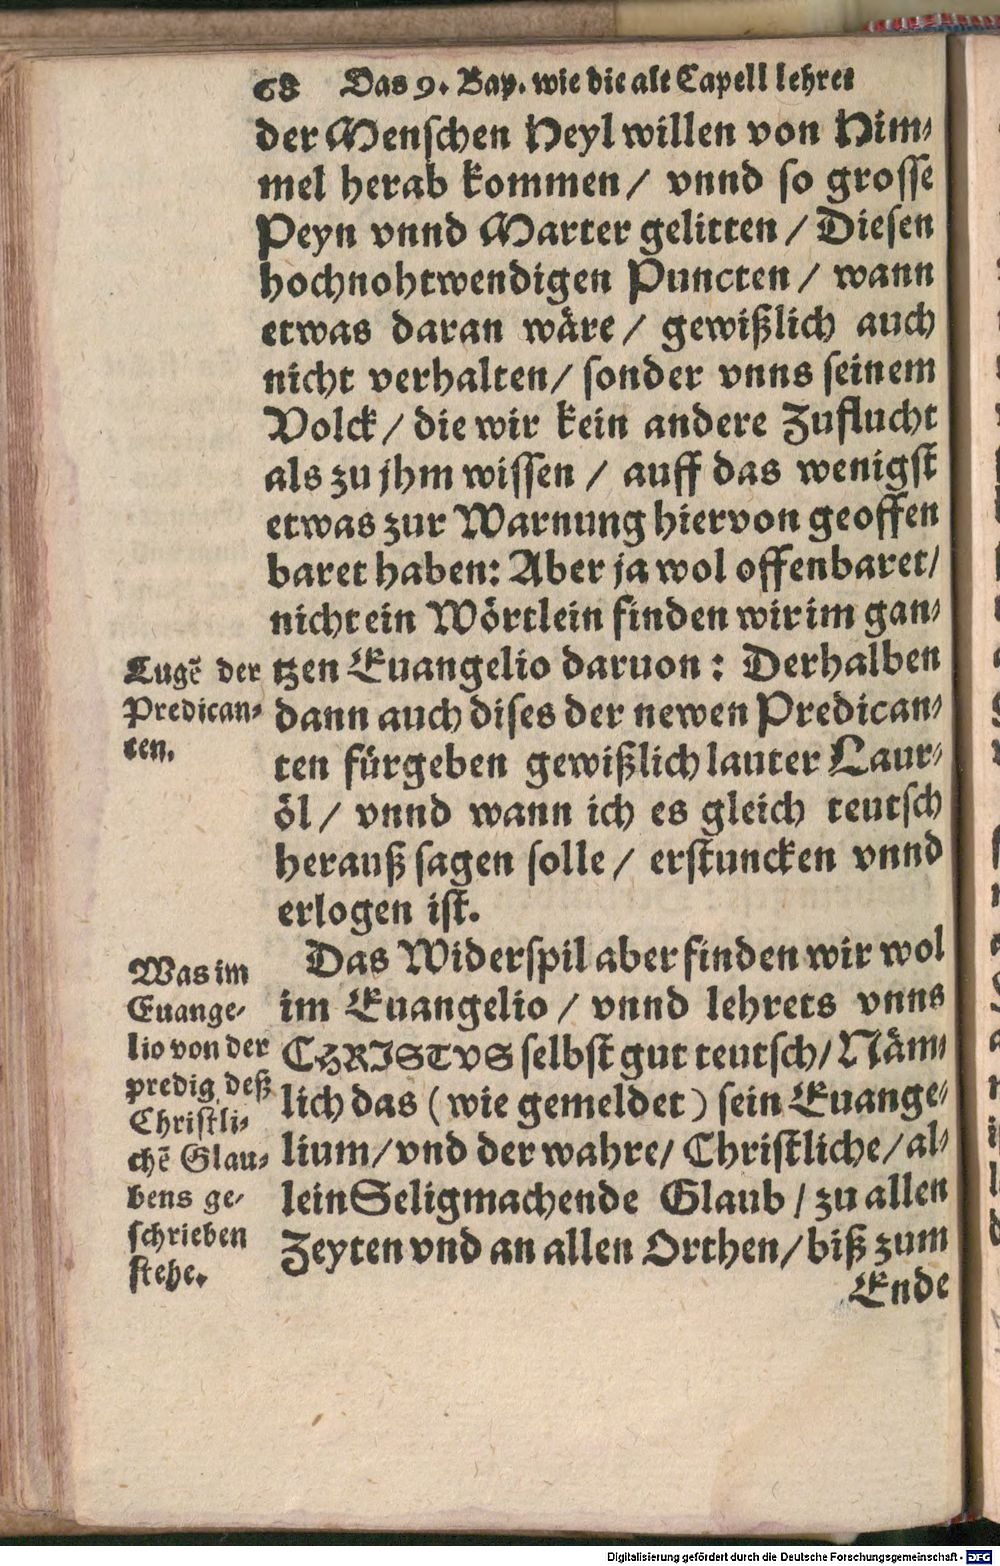 68 Das 9. Bay. wie die alt Capell lehret
der Menſchen Heyl willen von Him⸗
mel herab kommen / vnnd ſo groſſe
Peyn vnnd Marter gelitten / Dieſen
hochnohtwendigen Puncten / wann
etwas daran wäre / gewißlich auch
nicht verhalten / ſonder vnns ſeinem
Volck / die wir kein andere Zuflucht
als zu jhm wiſſen / auff das wenigſt
etwas zur Warnung hiervon geoffen
baret haben: Aber ja wol offenbaret /
nicht ein Wörtlein finden wir im gan⸗
tzen Euangelio daruon : Derhalben
dann auch diſes der newen Predican⸗
ten fürgeben gewißlich lauter Laur⸗
öl / vnnd wann ich es gleich teutſch
herauß ſagen ſolle / erſtuncken vnnd
erlogen iſt.
Lugẽ der
Predican⸗
ten.
Das Widerſpil aber finden wir wol
im Euangelio / vnnd lehrets vnns
CHRISTVS ſelbſt gut teutſch / Näm⸗
lich das (wie gemeldet) ſein Euange⸗
lium / vnd der wahre / Chriſtliche / al⸗
lein Seligmachende Glaub / zu allen
Zeyten vnd an allen Orthen / biß zum
Ende
Was im
Euange⸗
lio von der
predig deß
Chriſtli⸗
chẽ Glau⸗
bens ge⸗
ſchrieben
ſtehe.
Digitalisierung gefördert durch die Deutsche Forschungsgemeinschaft - DFG